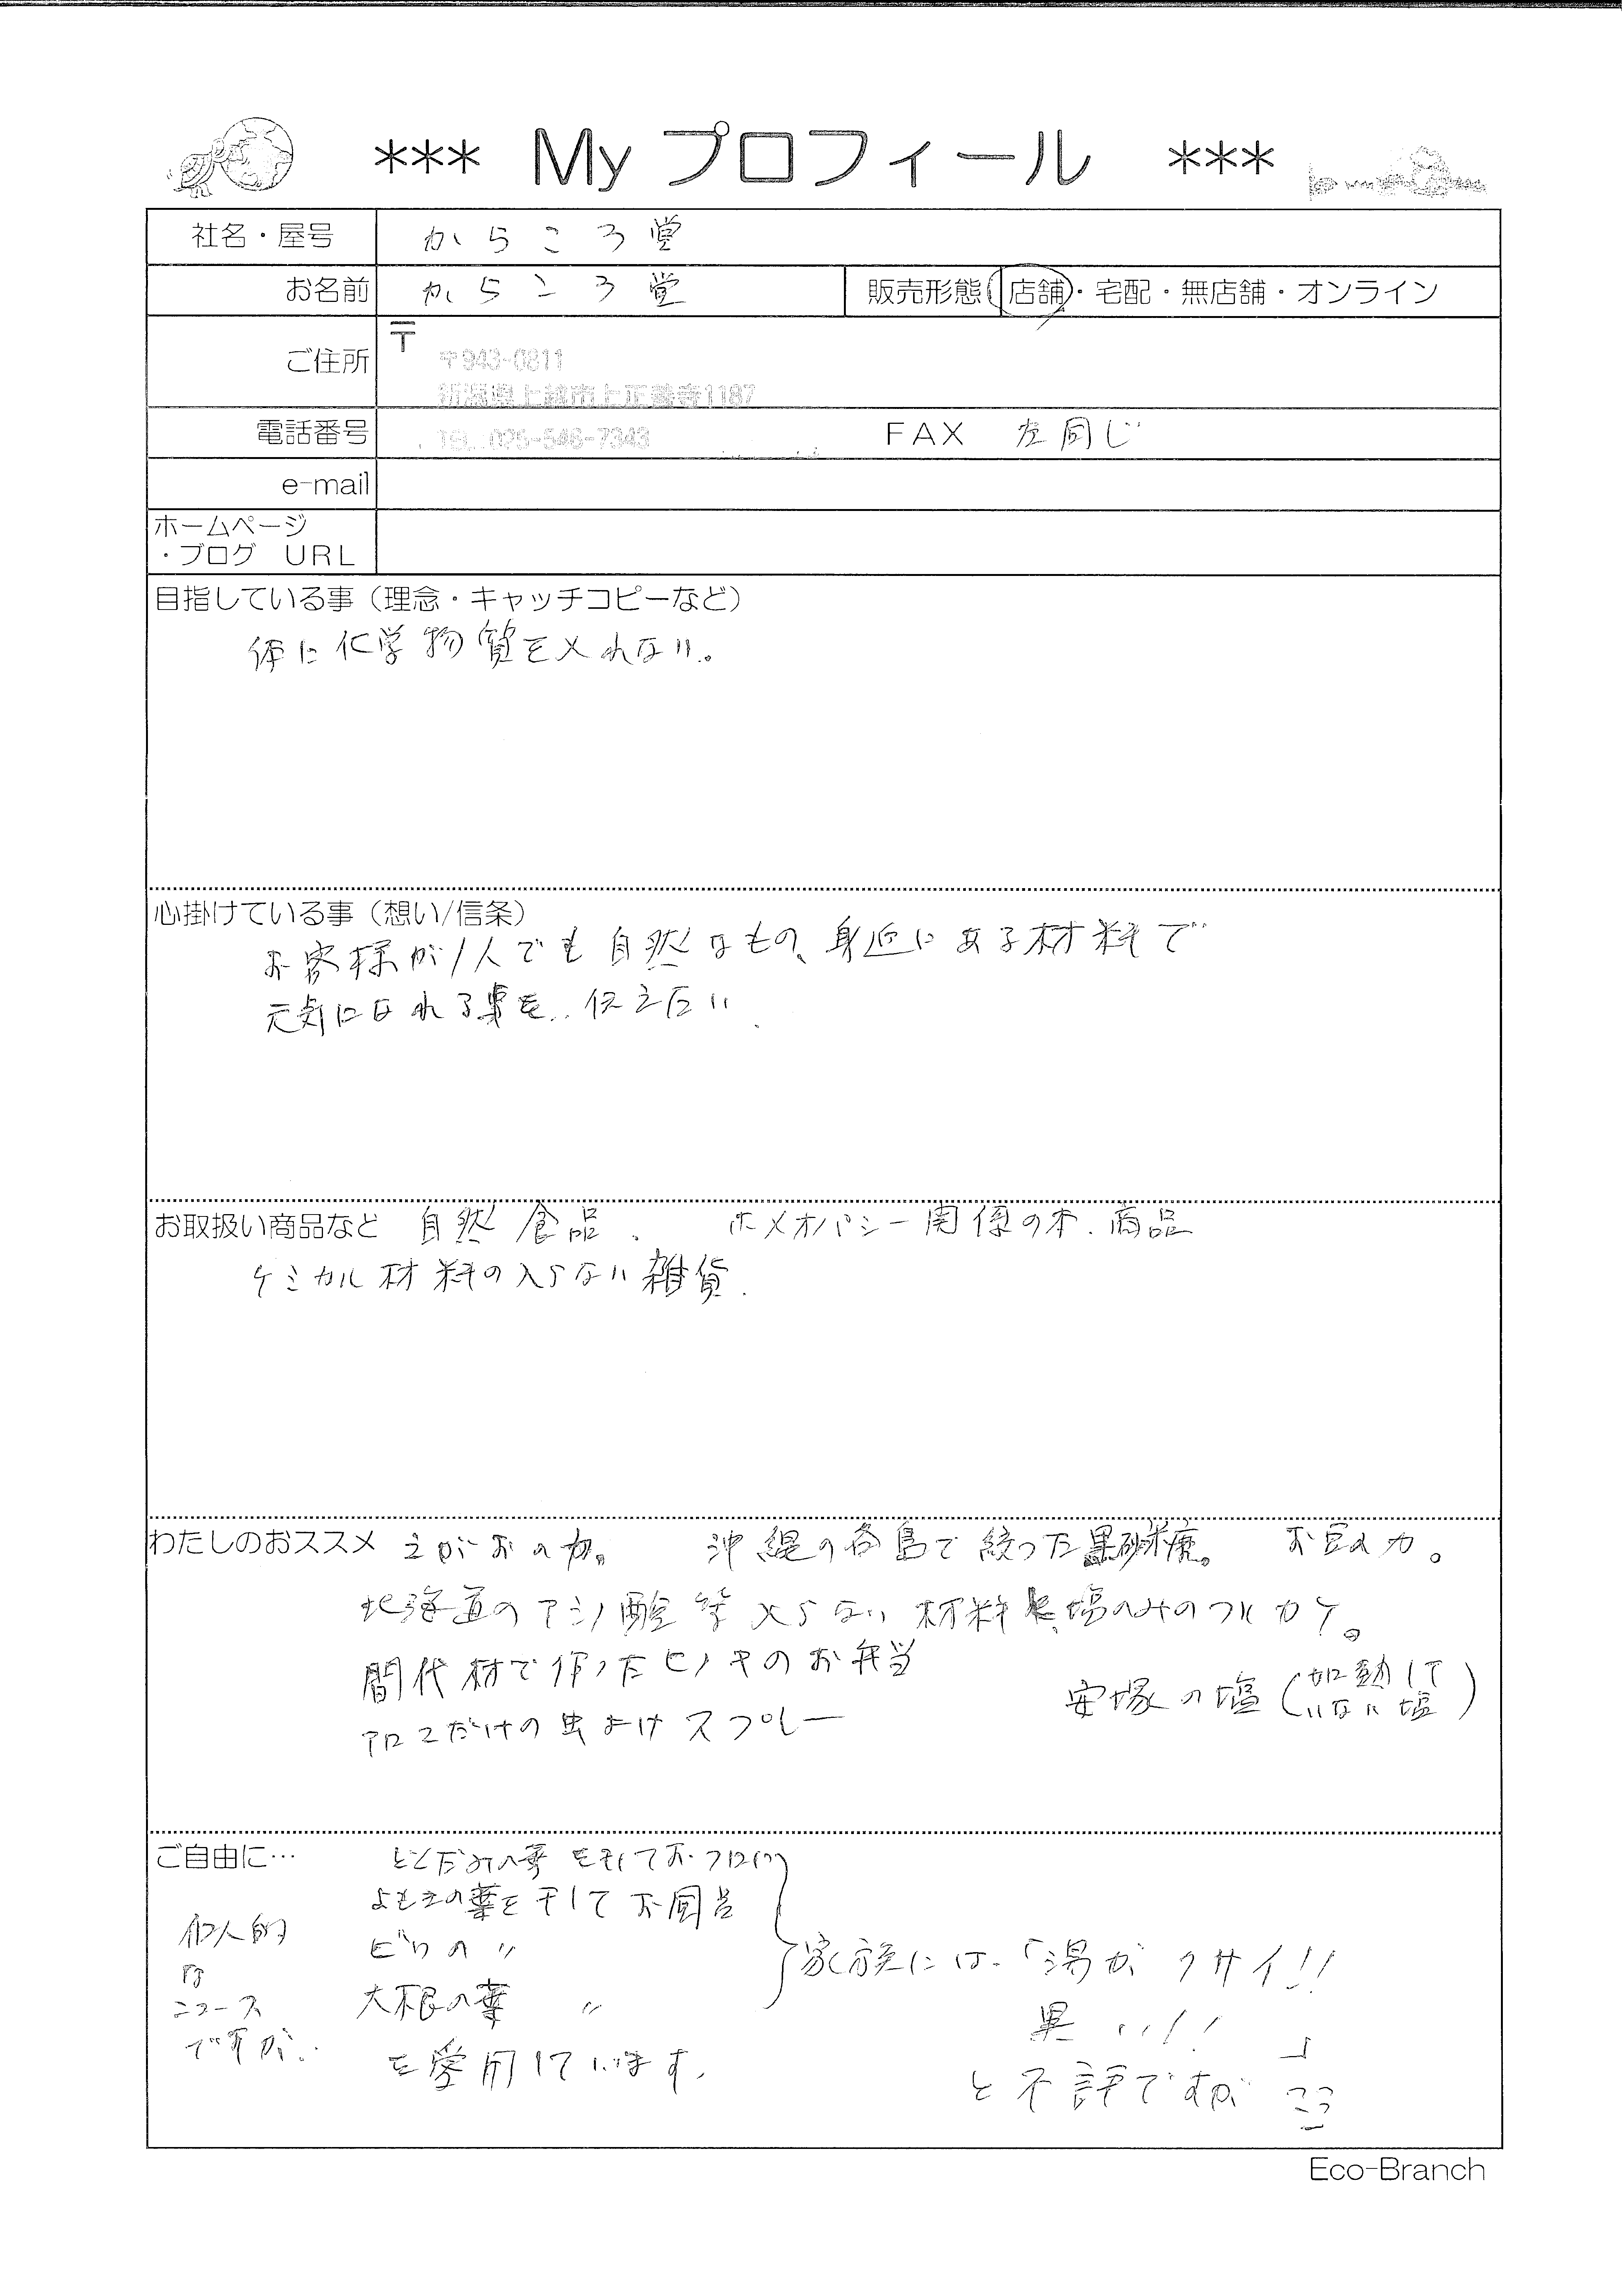 *** My プロフィール ***
社名・屋号 からころ堂
お名前 からころ堂 販売形態 店舗・宅配・無店舗・オンライン
ご住所 〒
〒943-0811
新潟県上越市上正善寺1187
電話番号 TEL.025-546-7343 FAX 左同じ
e-mail
ホームページ
・ブログ URL
目指している事(理念・キャッチコピーなど)
体に化学物質を入れない。
心掛けている事(想い/信条)
お客様が1人でも自然なもの、身近にある材料で
元気になれる事を、伝えたい
お取扱い商品など 自然食品、 ホメオパシー関係の本、商品
ケミカル材料の入らない雑貨
わたしのおススメ えがおの力。 沖縄の各島で絞った黒砂糖。 お豆の力。
北海道のアミノ酸等入らない材料 塩のみのフルカケ。
間代材で作ったヒノキのお弁当
安塚の塩(加熱していない塩)
アロマだけの虫よけスプレー
ご自由に…
個人的
な
ニュース
ですが、
どくだみの葉を干してお風呂
よもぎの葉を干してお風呂
ビワの 〃
大根の葉 〃
を愛用しています。
家族には、「湯がクサイ!!
黒い!!」
と不評ですが
Eco-Branch